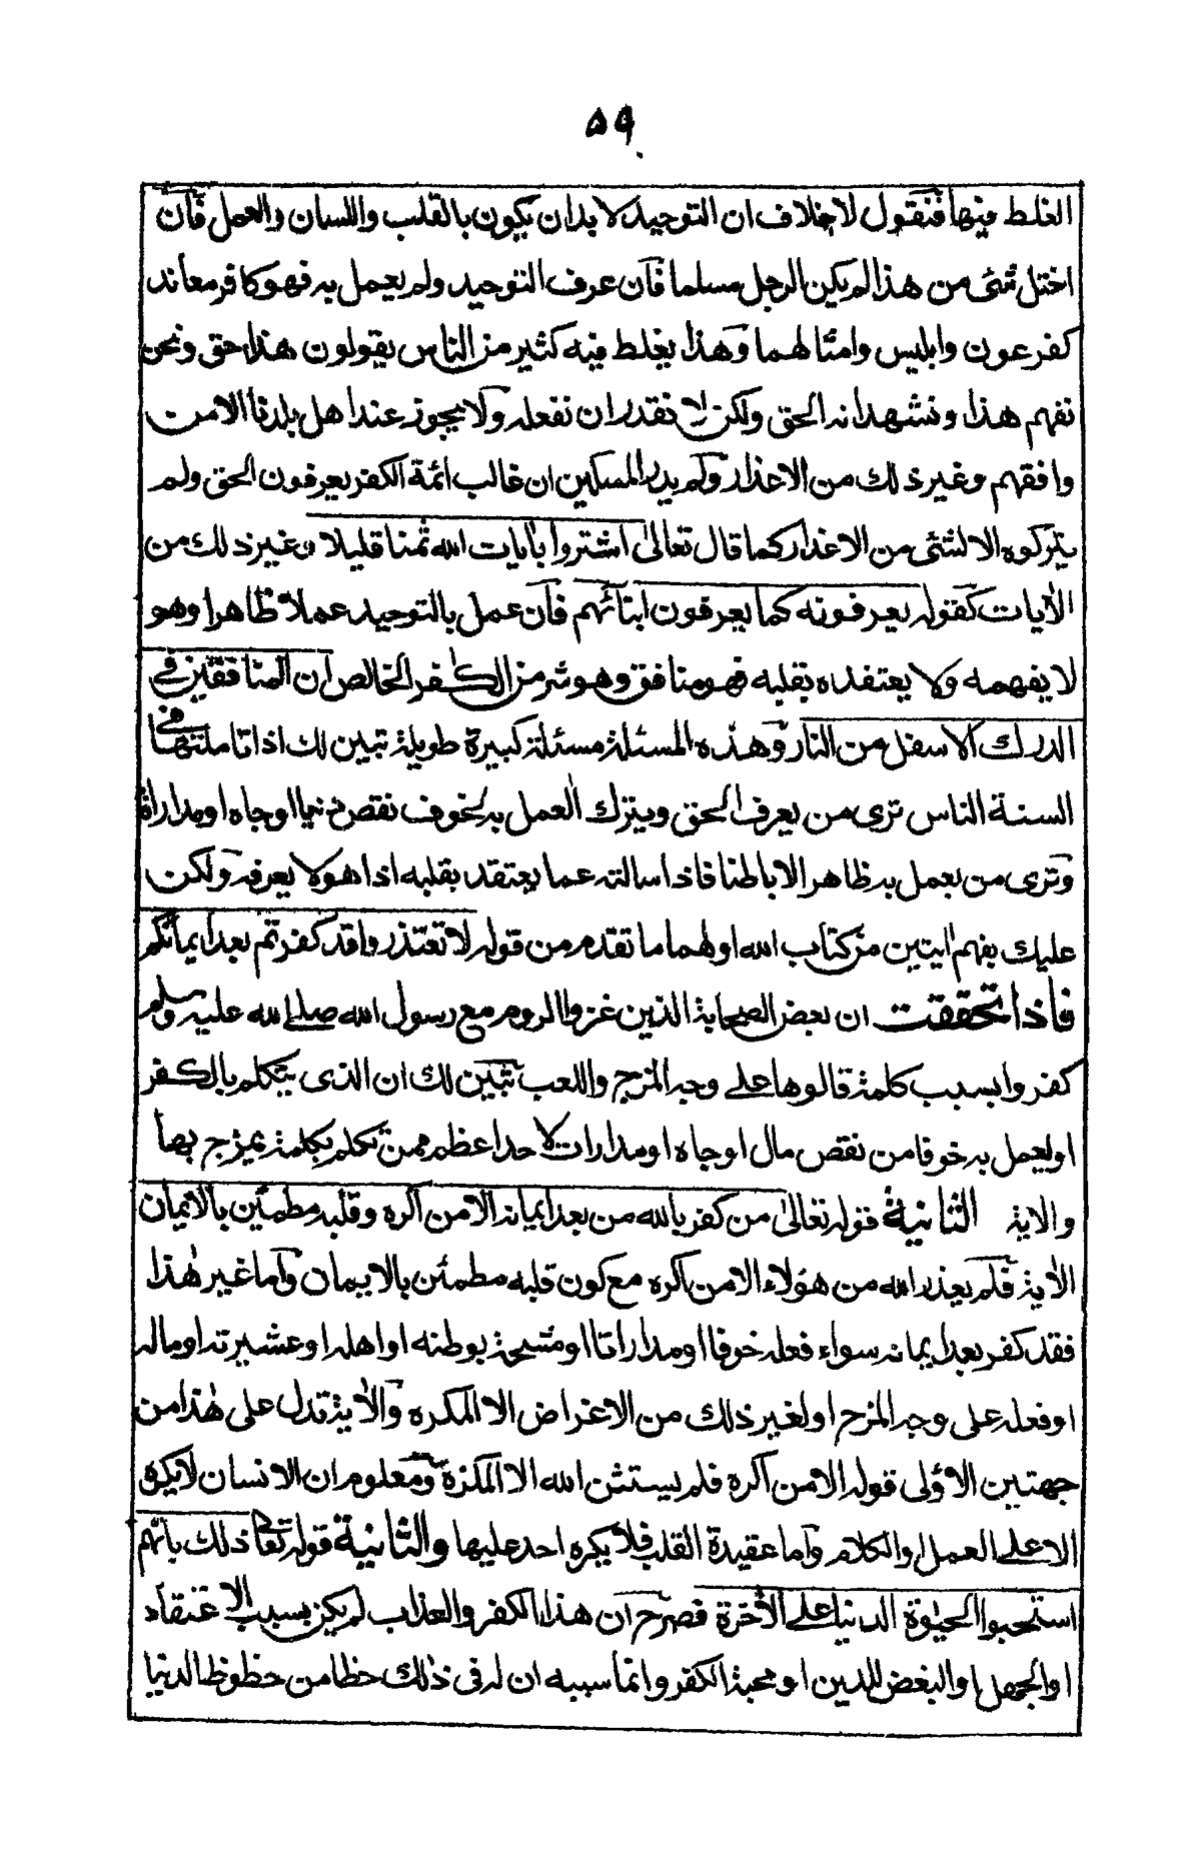 ۵۹
الغلط فيها فنقول لا خلاف ان التوحيد لا بد ان يكون بالقلب واللسان والعمل فان
اختل شئ من هذا لم يكن الرجل مسلما فان عرف التوحيد ولم يعمل به فهو كافر معاند
كفرعون وابليس وامثالهما وهذا يغلط فيه كثير من الناس يقولون هذا حق ونحن
نفهم هذا ونشهد انه الحق ولكن لا نقدر ان نفعله ولا يجوز عند اهل بلدنا الا من
وافقهم وغير ذلك من الاعذار ولم يدر المسكين ان غالب ائمة الكفر يعرفون الحق ولم
يتركوه الا لشئ من الاعذار كما قال تعالى اشتروا بآيات الله ثمنا قليلا وغير ذلك من
الآيات كقوله يعرفونه كما يعرفون ابنائهم فان عمل بالتوحيد عملا ظاهرا وهو
لا يفهمه ولا يعتقده بقلبه فهو منافق وهو شر من الكافر الخالص ان المنافقين في
الدرك الاسفل من النار وهذه المسئلة مسئلة كبيرة طويلة تبين لك اذا تاملتها في
السنة الناس ترى من يعرف الحق ويترك العمل به لخوف نقص دنيا او جاه او مداراة
وترى من يعمل به ظاهرا لا باطنا فاذا سالته عما يعتقد بقلبه اذا هو لا يعرفه ولكن
عليك بفهم ايتين من كتاب الله اولهما ما تقدم من قوله لا تعتذروا قد كفرتم بعد ايمانكم
فاذا تحققت ان بعض الصحابة الذين غزوا الروم مع رسول الله صلى الله عليه وسلم
كفروا بسبب كلمة قالوها على وجه المزح واللعب تبين لك ان الذى يتكلم بالكفر
او يعمل به خوفا من نقص مال او جاه او مدارات لاحد اعظم ممن تكلم بكلمة يمزح بها
والاية الثانية قوله تعالى من كفر بالله من بعد ايمانه الا من اكره وقلبه مطمئن بالايمان
الاية فلم يعذر الله من هؤلاء الا من اكره مع كون قلبه مطمئن بالايمان واما غير هذا
فقد كفر بعد ايمانه سواء فعله خوفا او مداراتا او مشحة بوطنه او اهله او عشيرته او ماله
او فعله على وجه المزح او لغير ذلك من الاغراض الا المكره والاية تدل على هذا من
جهتين الاولى قوله الا من اكره فلم يستثن الله الا المكره ومعلوم ان الانسان لا يكره
الا على العمل او الكلام واما عقيدة القلب فلا يكره احد عليها والثانية قوله تعالى ذلك بانهم
استحبوا الحيوة الدنيا على الآخرة فصرح ان هذا الكفر والعذاب لم يكن بسبب الاعتقاد
او الجهل او البغض للدين او محبة الكفر وانما سببه ان له في ذلك حظا من حظوظ الدنيا